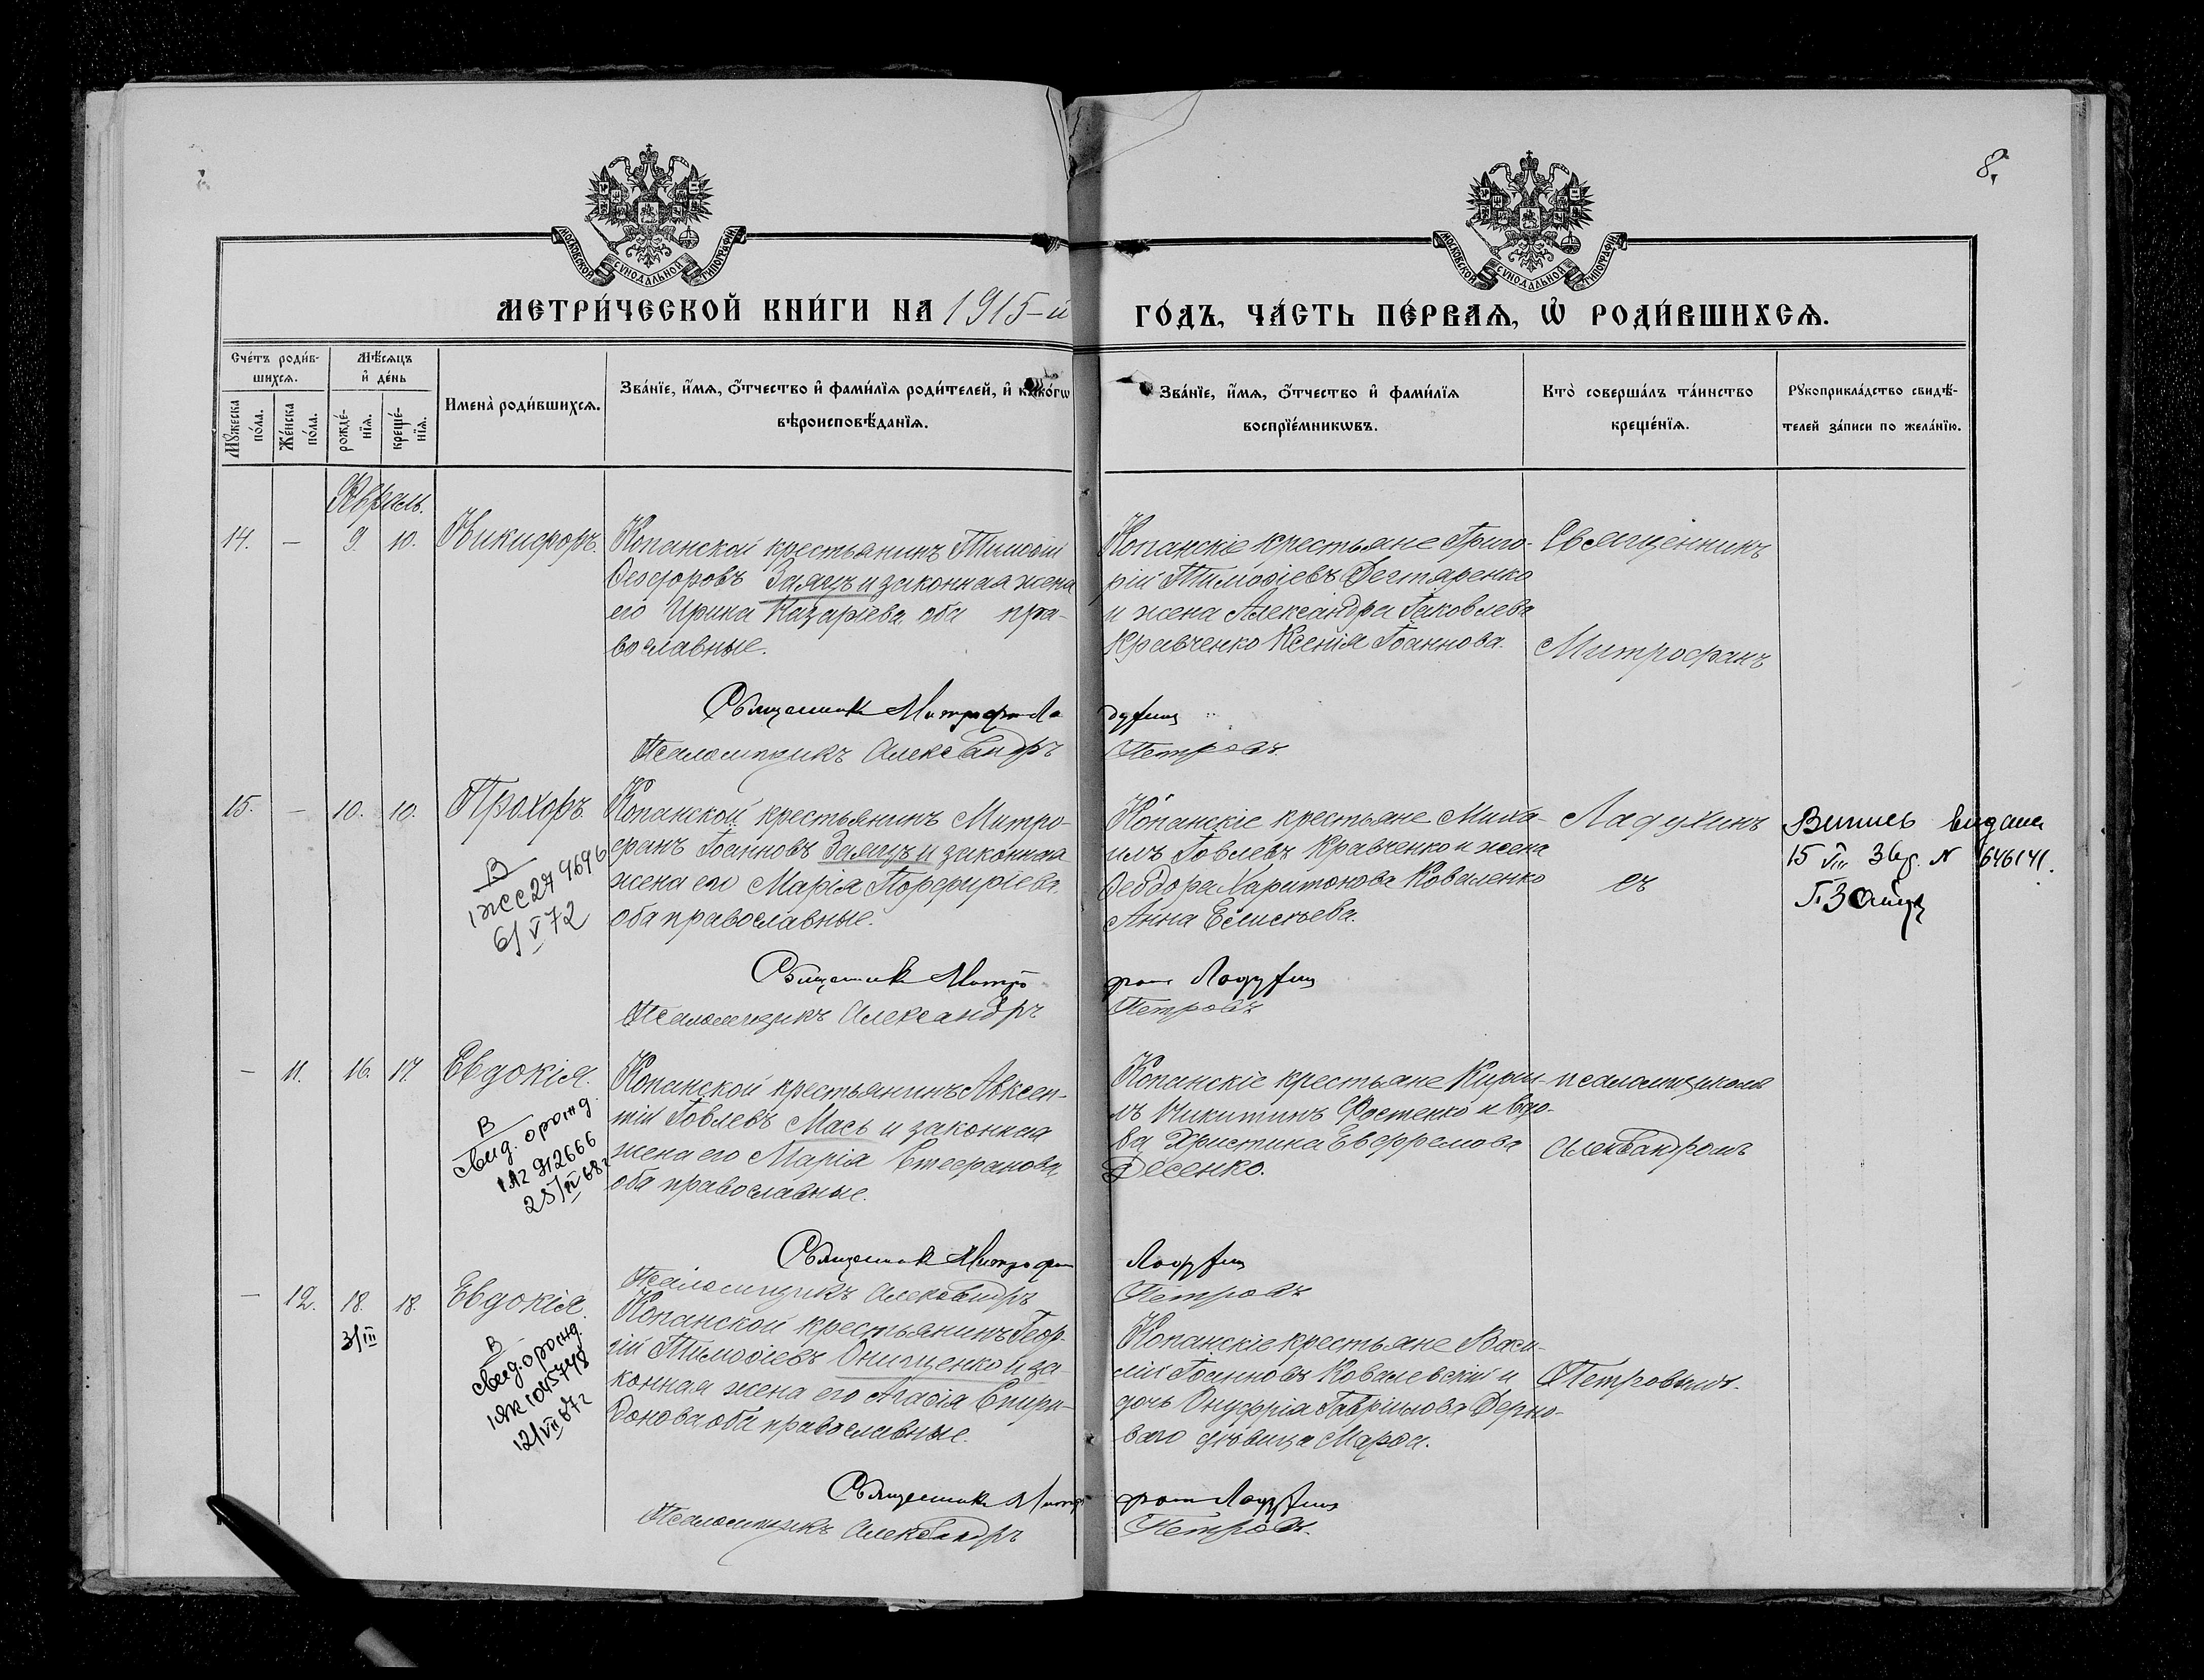 8.
МОСКОВСКОЙ СѴНОДАЛЬНОЙ ТИПОГРАФІИ
МОСКОВСКОЙ СѴНОДАЛЬНОЙ ТИПОГРАФІИ
МЕТРИ́ЧЕСКОЙ КНИ́ГИ НА 1915-й
ГО́ДЪ, ЧА́СТЬ ПЕ́РВАѦ, Ѡ҆ РОДИ́ВШИХСѦ.
Сче́тъ роди́в-
шихсѧ.
Мѣ́сѧцъ
и҆ де́нь
Мꙋ́жеска
по́ла.
Же́нска
по́ла.
рожде́-
нїѧ.
креще́-
нїѧ.
Имена̀ роди́вшихсѧ.
Зва́нїе, и҆́мѧ, ѻ҆́тчество и҆ фами́лїѧ роди́телей, и҆ како́гѡ
вѣроисповѣ́данїѧ.
Зва́нїе, и҆́мѧ, ѻ҆́тчество и҆ фами́лїѧ
воспрїе́мникѡвъ.
Кто̀ соверша́лъ та́инство
креще́нїѧ.
Рꙋкоприкла́дство свидѣ́-
телей за́писи по жела́нїю.
Февраль.
14. — 9. 10. Никифоръ.
Копанской крестьянинъ Тимоѳій
Ѳеодоровъ Заяцъ и законная жена
его Ирина Назаріева, оба пра-
вославные.
Копанскіе крестьяне Григо-
рій Тимоѳіевъ Дегтяренко
и жена Александра Іаковлева
Кравченко Ксенія Іоаннова.
Священникъ
Митрофанъ
Священникъ Митрофанъ Ла
духинъ
Псаломщикъ Александръ
Петровъ.
15. — 10. 10. Прохоръ.
В
6/V 72
Копанской крестьянинъ Митро-
фанъ Іоанновъ Заяцъ и законная
жена его Марія Порфиріева,
оба православные.
Копанскіе крестьяне Миха-
илъ Іовлевъ Кравченко и жена
Ѳеодора Харитонова Коваленко
Анна Елисѣева.
Ладухинъ
съ
15 VIII 36г. N 646141.
Священникъ Митро
фанъ Ладухинъ
Псаломщикъ Александръ
Петровъ
— 11. 16. 17. Евдокія.
В
свид. о рожд.
912666
25/IV 68г
Копанской крестьянинъ Авксен-
тій Іовлевъ Мась и законная
жена его Марія Стефанова,
оба православные.
Копанскіе крестьяне Кирил-
лъ Никитинъ Фостенко и вдо-
ва Христина Евфремова
Десенко.
псаломщикомъ
Александромъ
Священникъ Митрофанъ
Ладухинъ
Псаломщикъ Александръ
Петровъ
— 12. 18. 18. Евдокія.
3/III
В
свид. о рожд.
1ЯК 1045748
12/VII 67г
Копанской крестьянинъ Геор-
гій Тимоѳіевъ Онищенко и за-
конная жена его Агаѳія Спири-
донова, оба православные.
Копанскіе крестьяне Васи-
лій Іоанновъ Ковалевскій и
дочь Онуфрія Гавріилова Дерно-
ваго дѣвица Марѳа.
Петровымъ.
Священникъ Митро
фанъ Ладухинъ
Псаломщикъ Александръ
Петровъ.